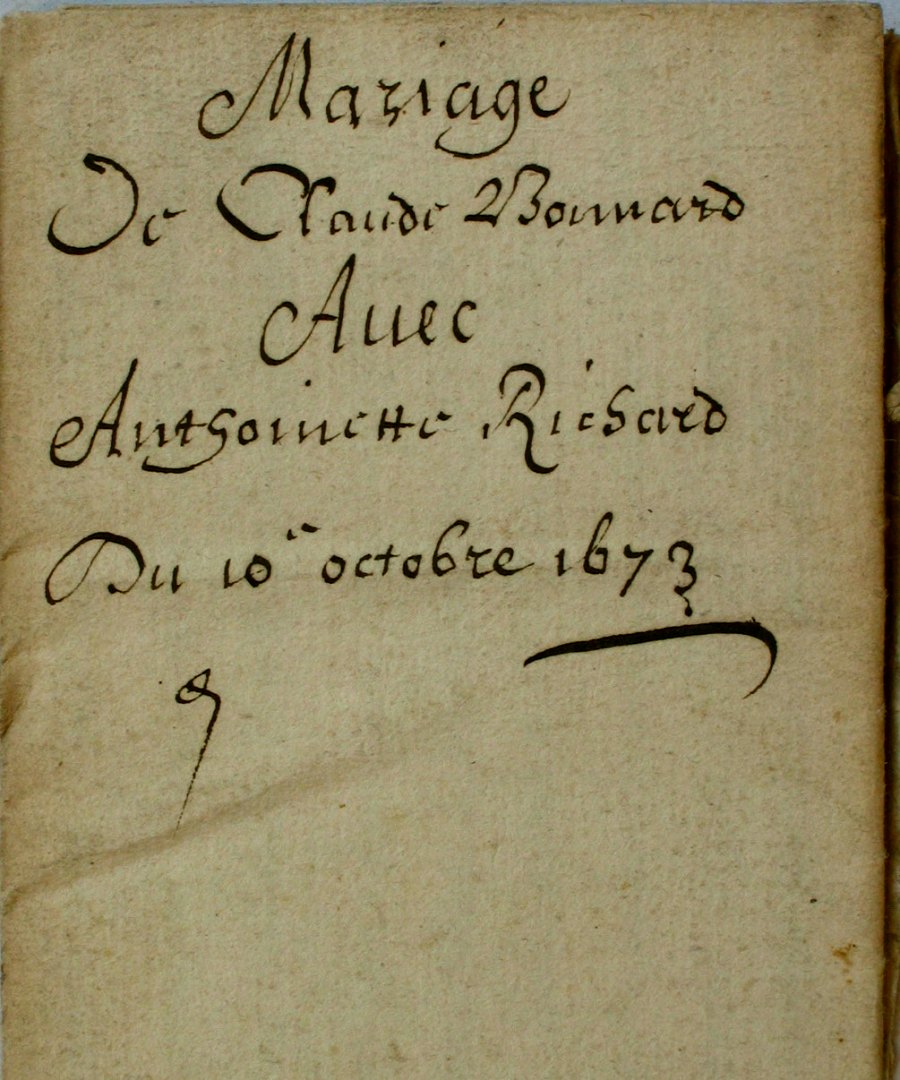 Mariage
De Claude Bonnard
Auec
Anthoinette Richard
Du 10e octobre 1673